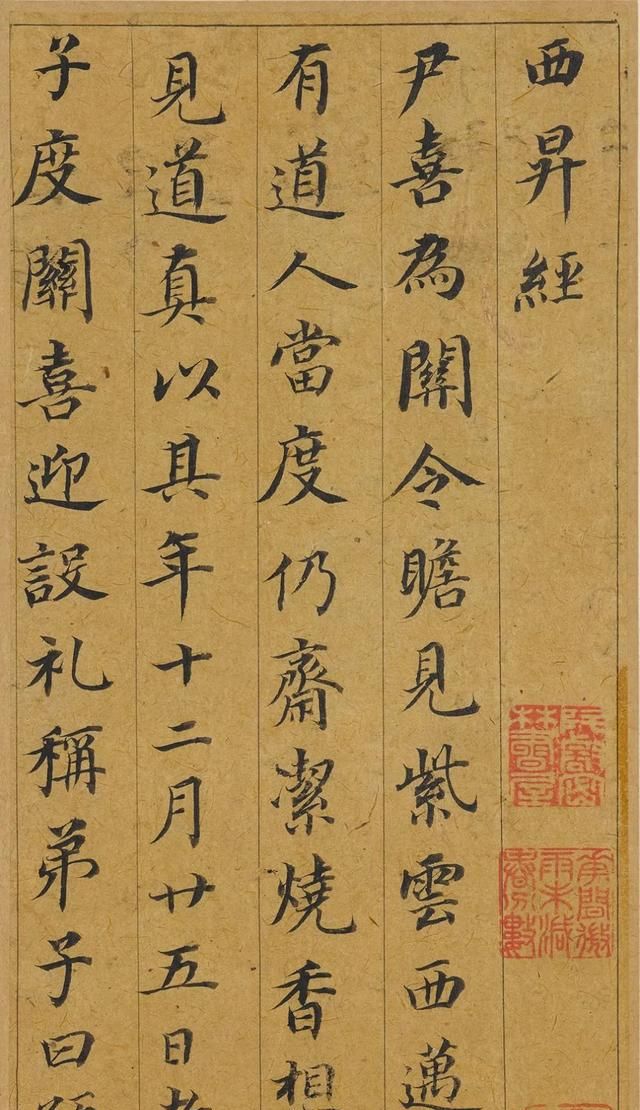 西昇經
尹喜為關令瞻見紫雲西邁
有道人當度仍齋潔燒香相
見道真以其年十二月廿五日
子度關喜迎設礼稱弟子曰